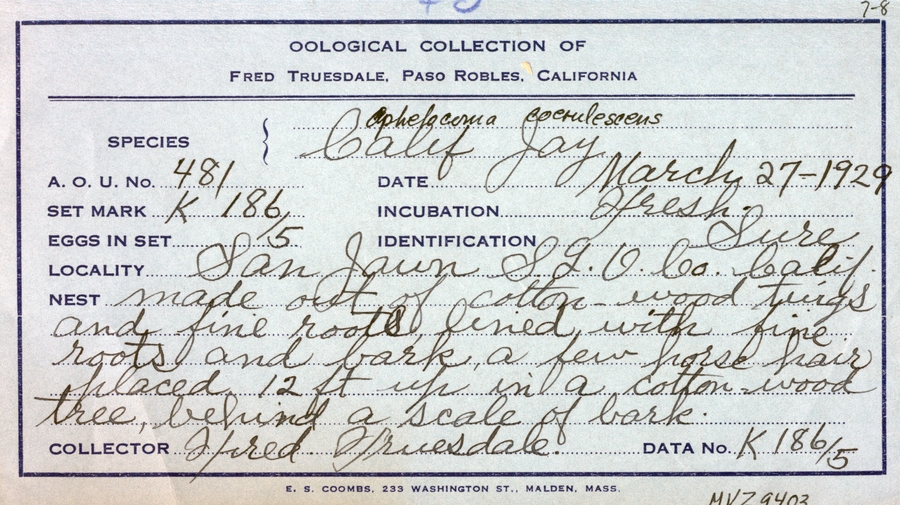 7-8
OOLOGICAL COLLECTION OF
FRED TRUESDALE, PASO ROBLES, CALIFORNIA
Aphelocoma coerulescens
SPECIES } Calif Jay
A. O. U. No. 481 DATE March 27-1929
SET MARK K 186/5 INCUBATION Fresh.
EGGS IN SET 5 IDENTIFICATION Sure
LOCALITY San Jawn S.L.O. Co. Calif.
NEST made out of cotton-wood twigs
and fine roots lined with fine
roots and bark, a few horse hair
placed 12 ft up in a cotton-wood
tree, behind a scale of bark.
COLLECTOR Fred Truesdale. DATA No. K 186/5
E. S. COOMBS, 233 WASHINGTON ST., MALDEN, MASS.
MVZ 9403